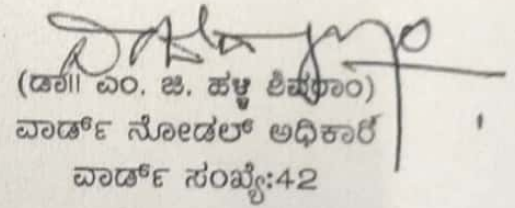 (ಡಾ|| ಎಂ. ಜಿ. ಹಳ್ಳಿ ಶಿವರಾಂ)
ವಾರ್ಡ್ ನೋಡಲ್ ಅಧಿಕಾರಿ
ವಾರ್ಡ್ ಸಂಖ್ಯೆ:42